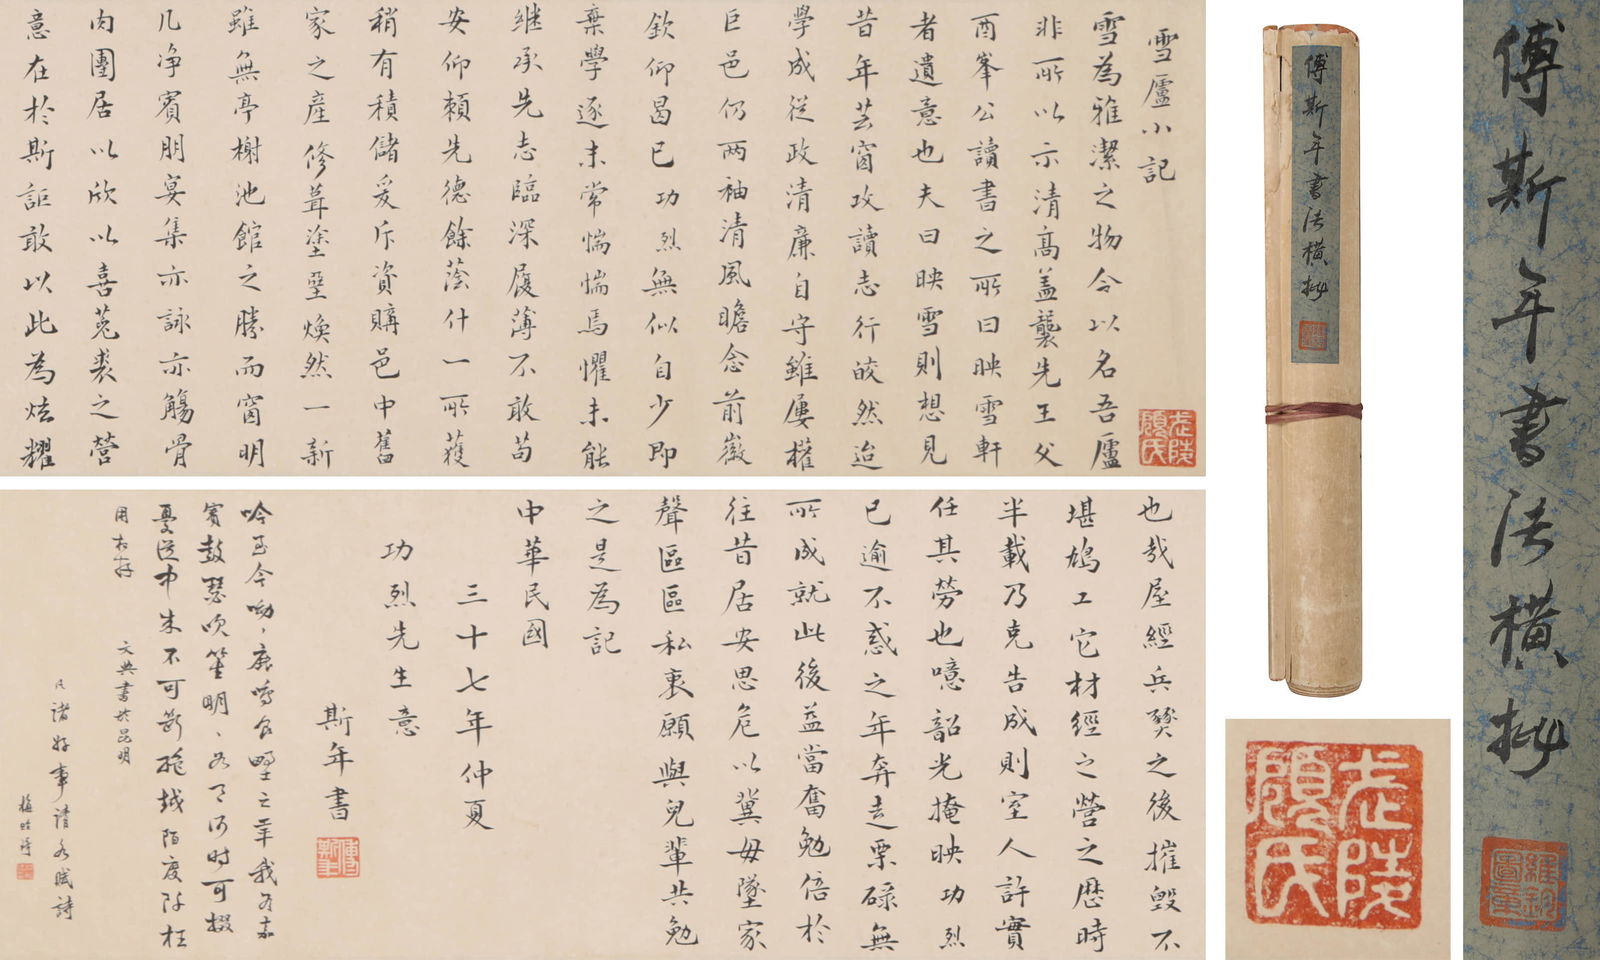 雪廬小記
雪為雅潔之物今以名吾廬
非所以示清高盖襲先王父
酉峯公讀書之所曰映雪軒
者遺意也夫曰映雪則想見
昔年芸窗攻讀志行皎然迨
學成從政清廉自守雖屢權
巨邑仍两袖清風瞻念前徽
欽仰曷已功烈無似自少即
棄學逐末常惴惴焉懼未能
继承先志臨深履薄不敢苟
安仰賴先德餘蔭什一所獲
稍有積儲爰斥資購邑中舊
家之產修葺塗塈煥然一新
雖無亭榭池館之勝而窗明
几净賓朋宴集亦詠亦觴骨
肉團居以欣以喜菟裘之營
意在於斯詎敢以此為炫耀
也哉屋經兵燹之後摧毁不
堪鳩工它材經之營之歷時
半載乃克告成則室人許實
任其勞也噫韶光掩映功烈
已逾不惑之年奔走栗碌無
所成就此後益當奮勉倍於
往昔居安思危以冀毋墜家
聲區區私衷願與兒輩共勉
之是為記
中華民國
三十七年仲夏
功烈先生意
斯年書
傅斯年
野之苹我有嘉
賓鼓瑟吹笙明明
何时可掇
憂從中来不可斷絶越陌度阡枉
用相存
文典書於昆明
諸好事請各賦詩
梅
武陵顧氏
傅斯年書法橫披
武陵顧氏
傅斯年書法橫披